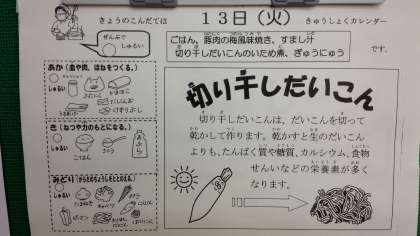 きょうのこんだては
13日（火）
きゅうしょくカレンダー
ぜんぶで
しゅるい
ごはん、豚肉の梅風味焼き、すまし汁
切り干しだいこんのいため煮、ぎゅうにゅう
です。
あか（血や肉、ほねをつくる。）
しゅるい
ぶたにく
かまぼこ
けずりぶし
き（ねつや力のもとになる。）
しゅるい
ごはん
さとう
あぶら
みどり（からだのちょうしをととのえる。）
しゅるい
にんじん
切り干しだいこん
切り干しだいこんは、だいこんを切って
乾かして作ります。乾かすと生のだいこん
よりも、たんぱく質や糖質、カルシウム、食物
せんいなどの栄養素が多く
なります。